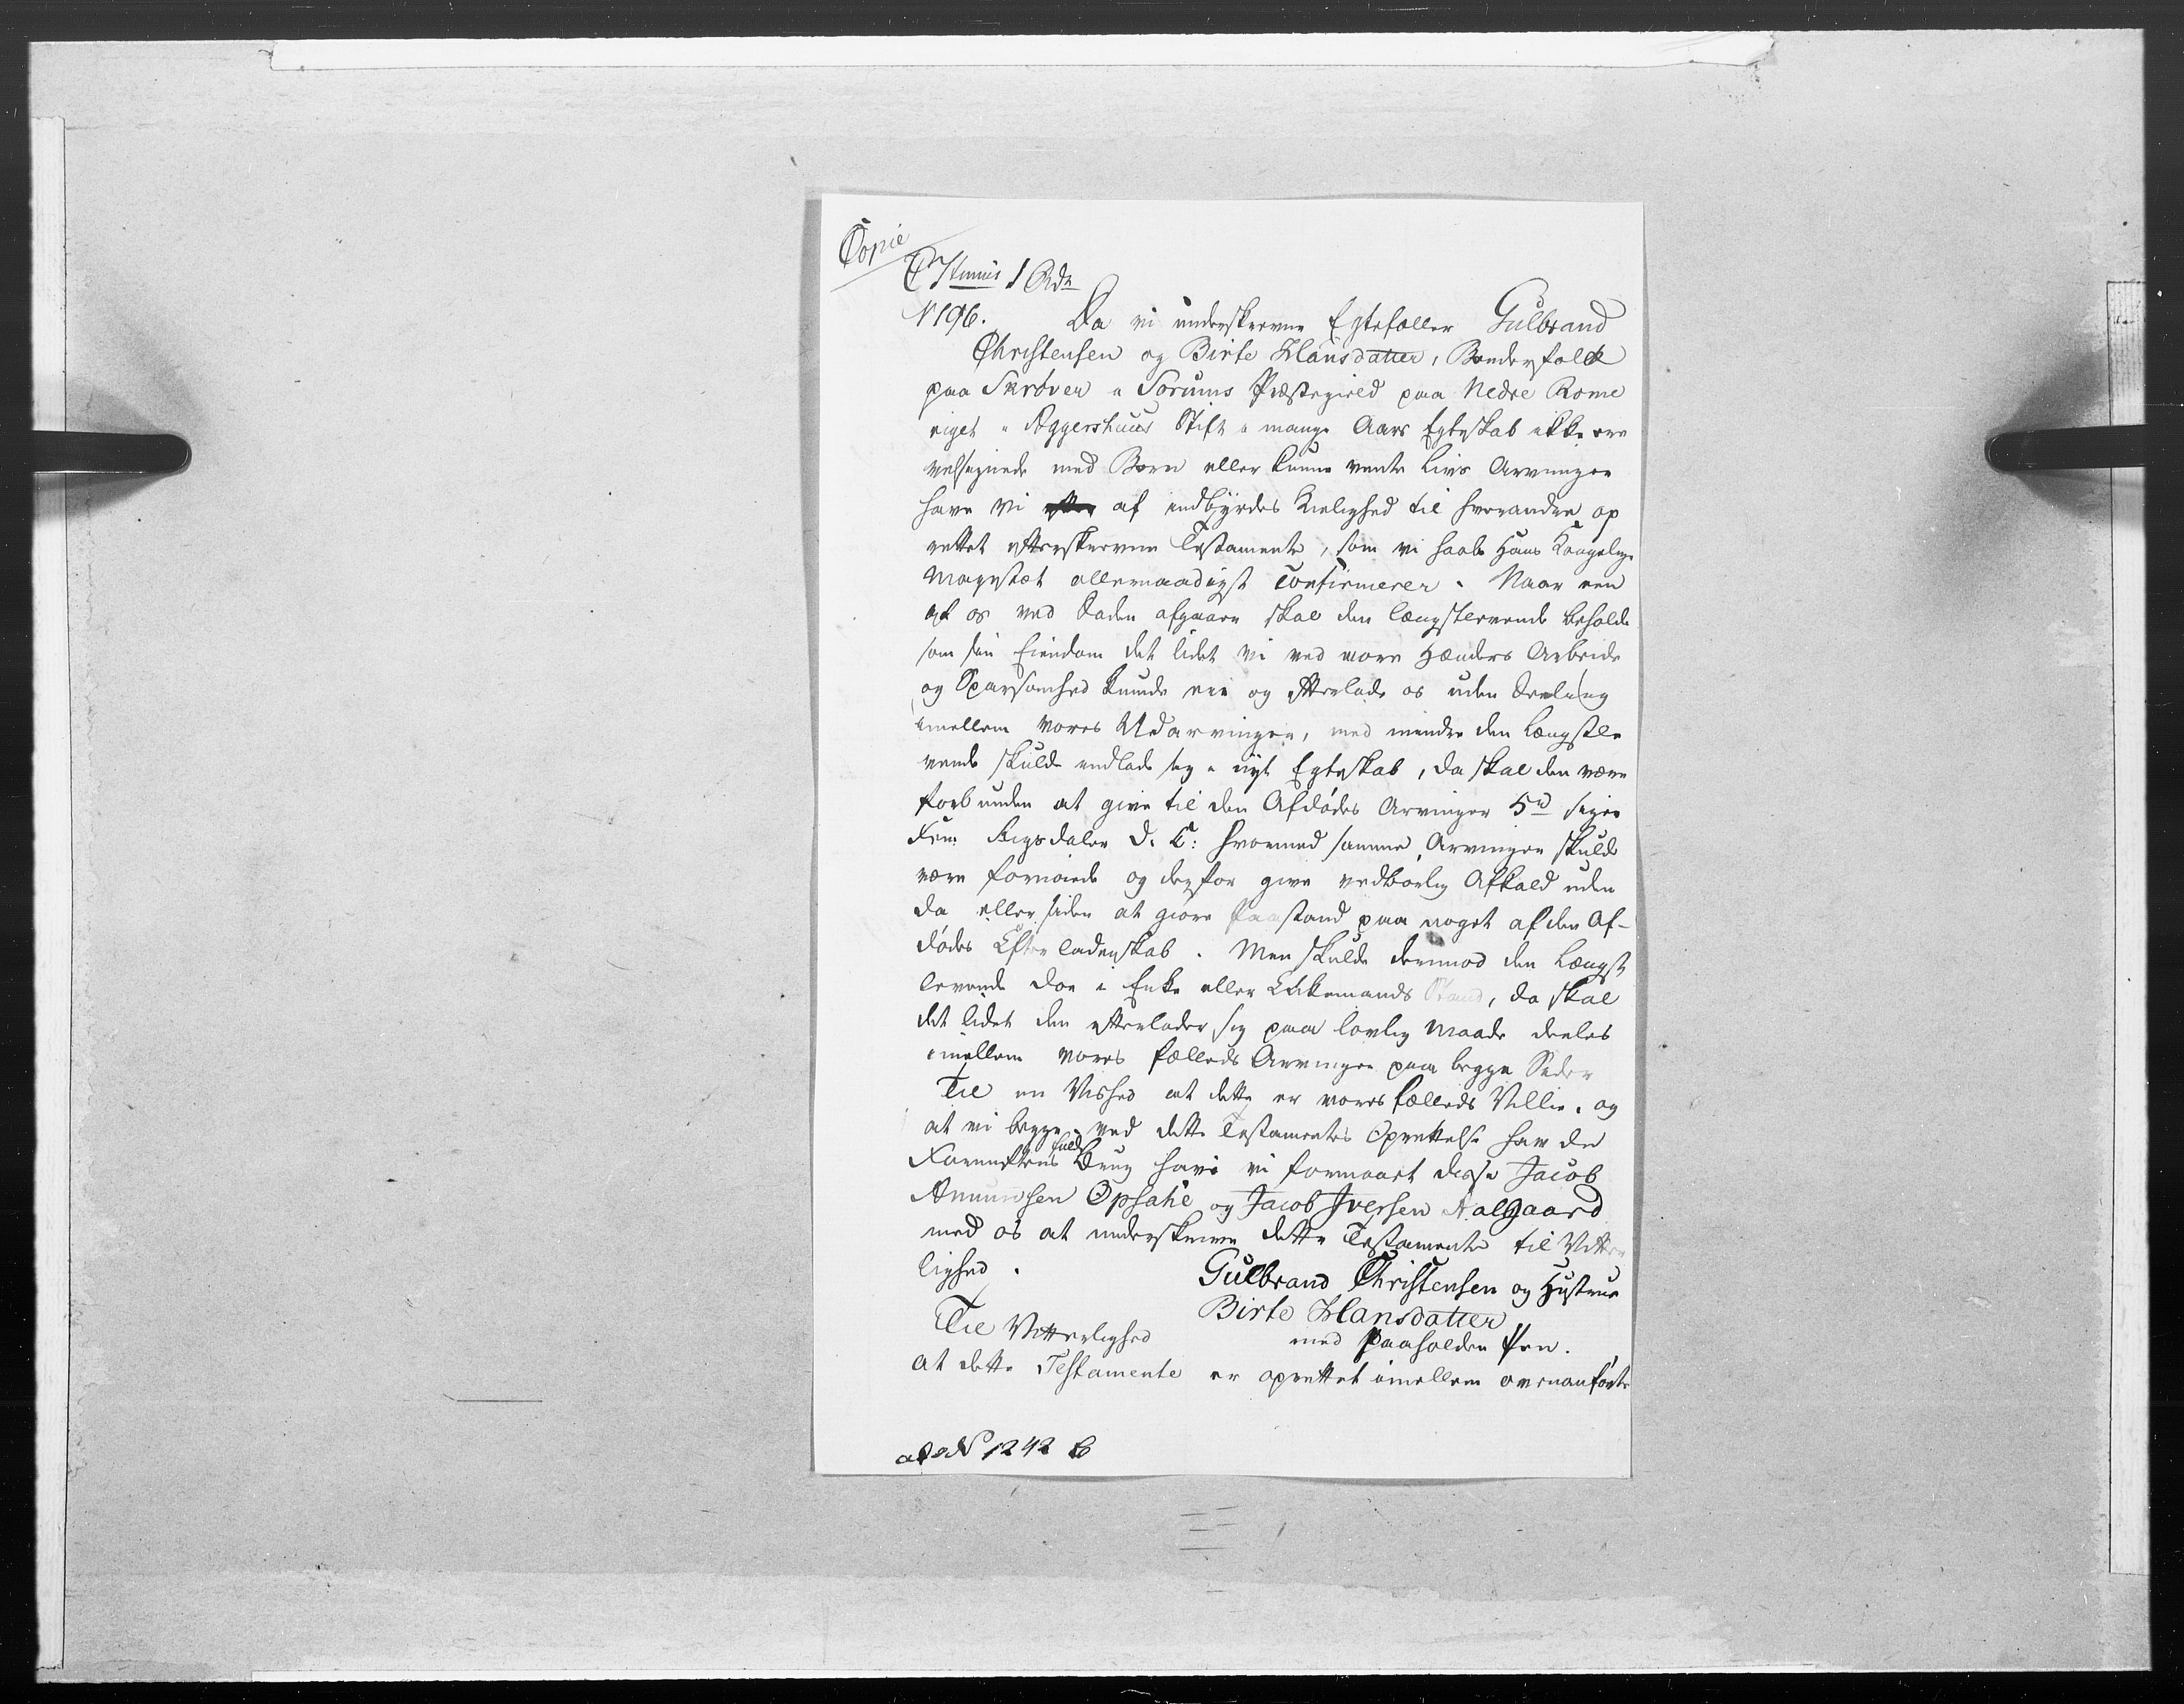 Copie
N 196. Da vi underskrevne Egtefæller Gulbrand
Christensen og Birte Hansdatter, Bønderfolck
paa Skröver i Sørums Præstegield paa Nedre Rome
riget i Aggershuus Stift i mange Aars Egteskab ikke ere
velsignede med Børn eller kunne vente Livs Arvinger
have vi af indbyrdes Kielighed til hverandre op
rettet efterskrevne Testamente, som vi haabe Hans Kongelige
Mayestæt allernaadigst Confirmerer. Naar een
af os ved Døden afgaaer skal den længstlevende beholde
som sin Eiendom det lidet vi ved vore Hænders Arbeide
og Sparsomhed kunde eie og efterlade os uden Deeling
imellem vores Udarvinger, med mindre den Længstle
vende skulde indlade sig i nyt Egteskab, da skal den være
forbunden at give til den Afdödes Arvinger 5 rd siger
Fem Rigsdaler D. C: hvormed samme Arvinger skulde
være fornøiede og derfor give vedbørlig Afkald uden
da eller siden at giöre Paastand paa noget af den Af-
dödes Efterladenskab. Men skulde derimod den Længst
levende døe i Enke eller Enkemands Stand, da skal
det lidet den efterlader sig paa lovlig Maade deeles
imellem vores fælleds Arvinger paa begge Sider
Til en Vished at dette er vores fælleds Villie, og
at vi begge ved dette Testamentes Oprettelse har den
Fornuftens fulde Brug have vi formaaet disse Jacob
Amundsen Opsahl og Jacob Iversen Aalgaard
med os at underskrive dette Testamente til Vitter
lighed.
Gulbrand Christensen og Hustrue
Birte Hansdatter
med paaholden Pen.
Til Vitterlighed
at dette Testamente er oprettet imellem ovenanførte
1242 B